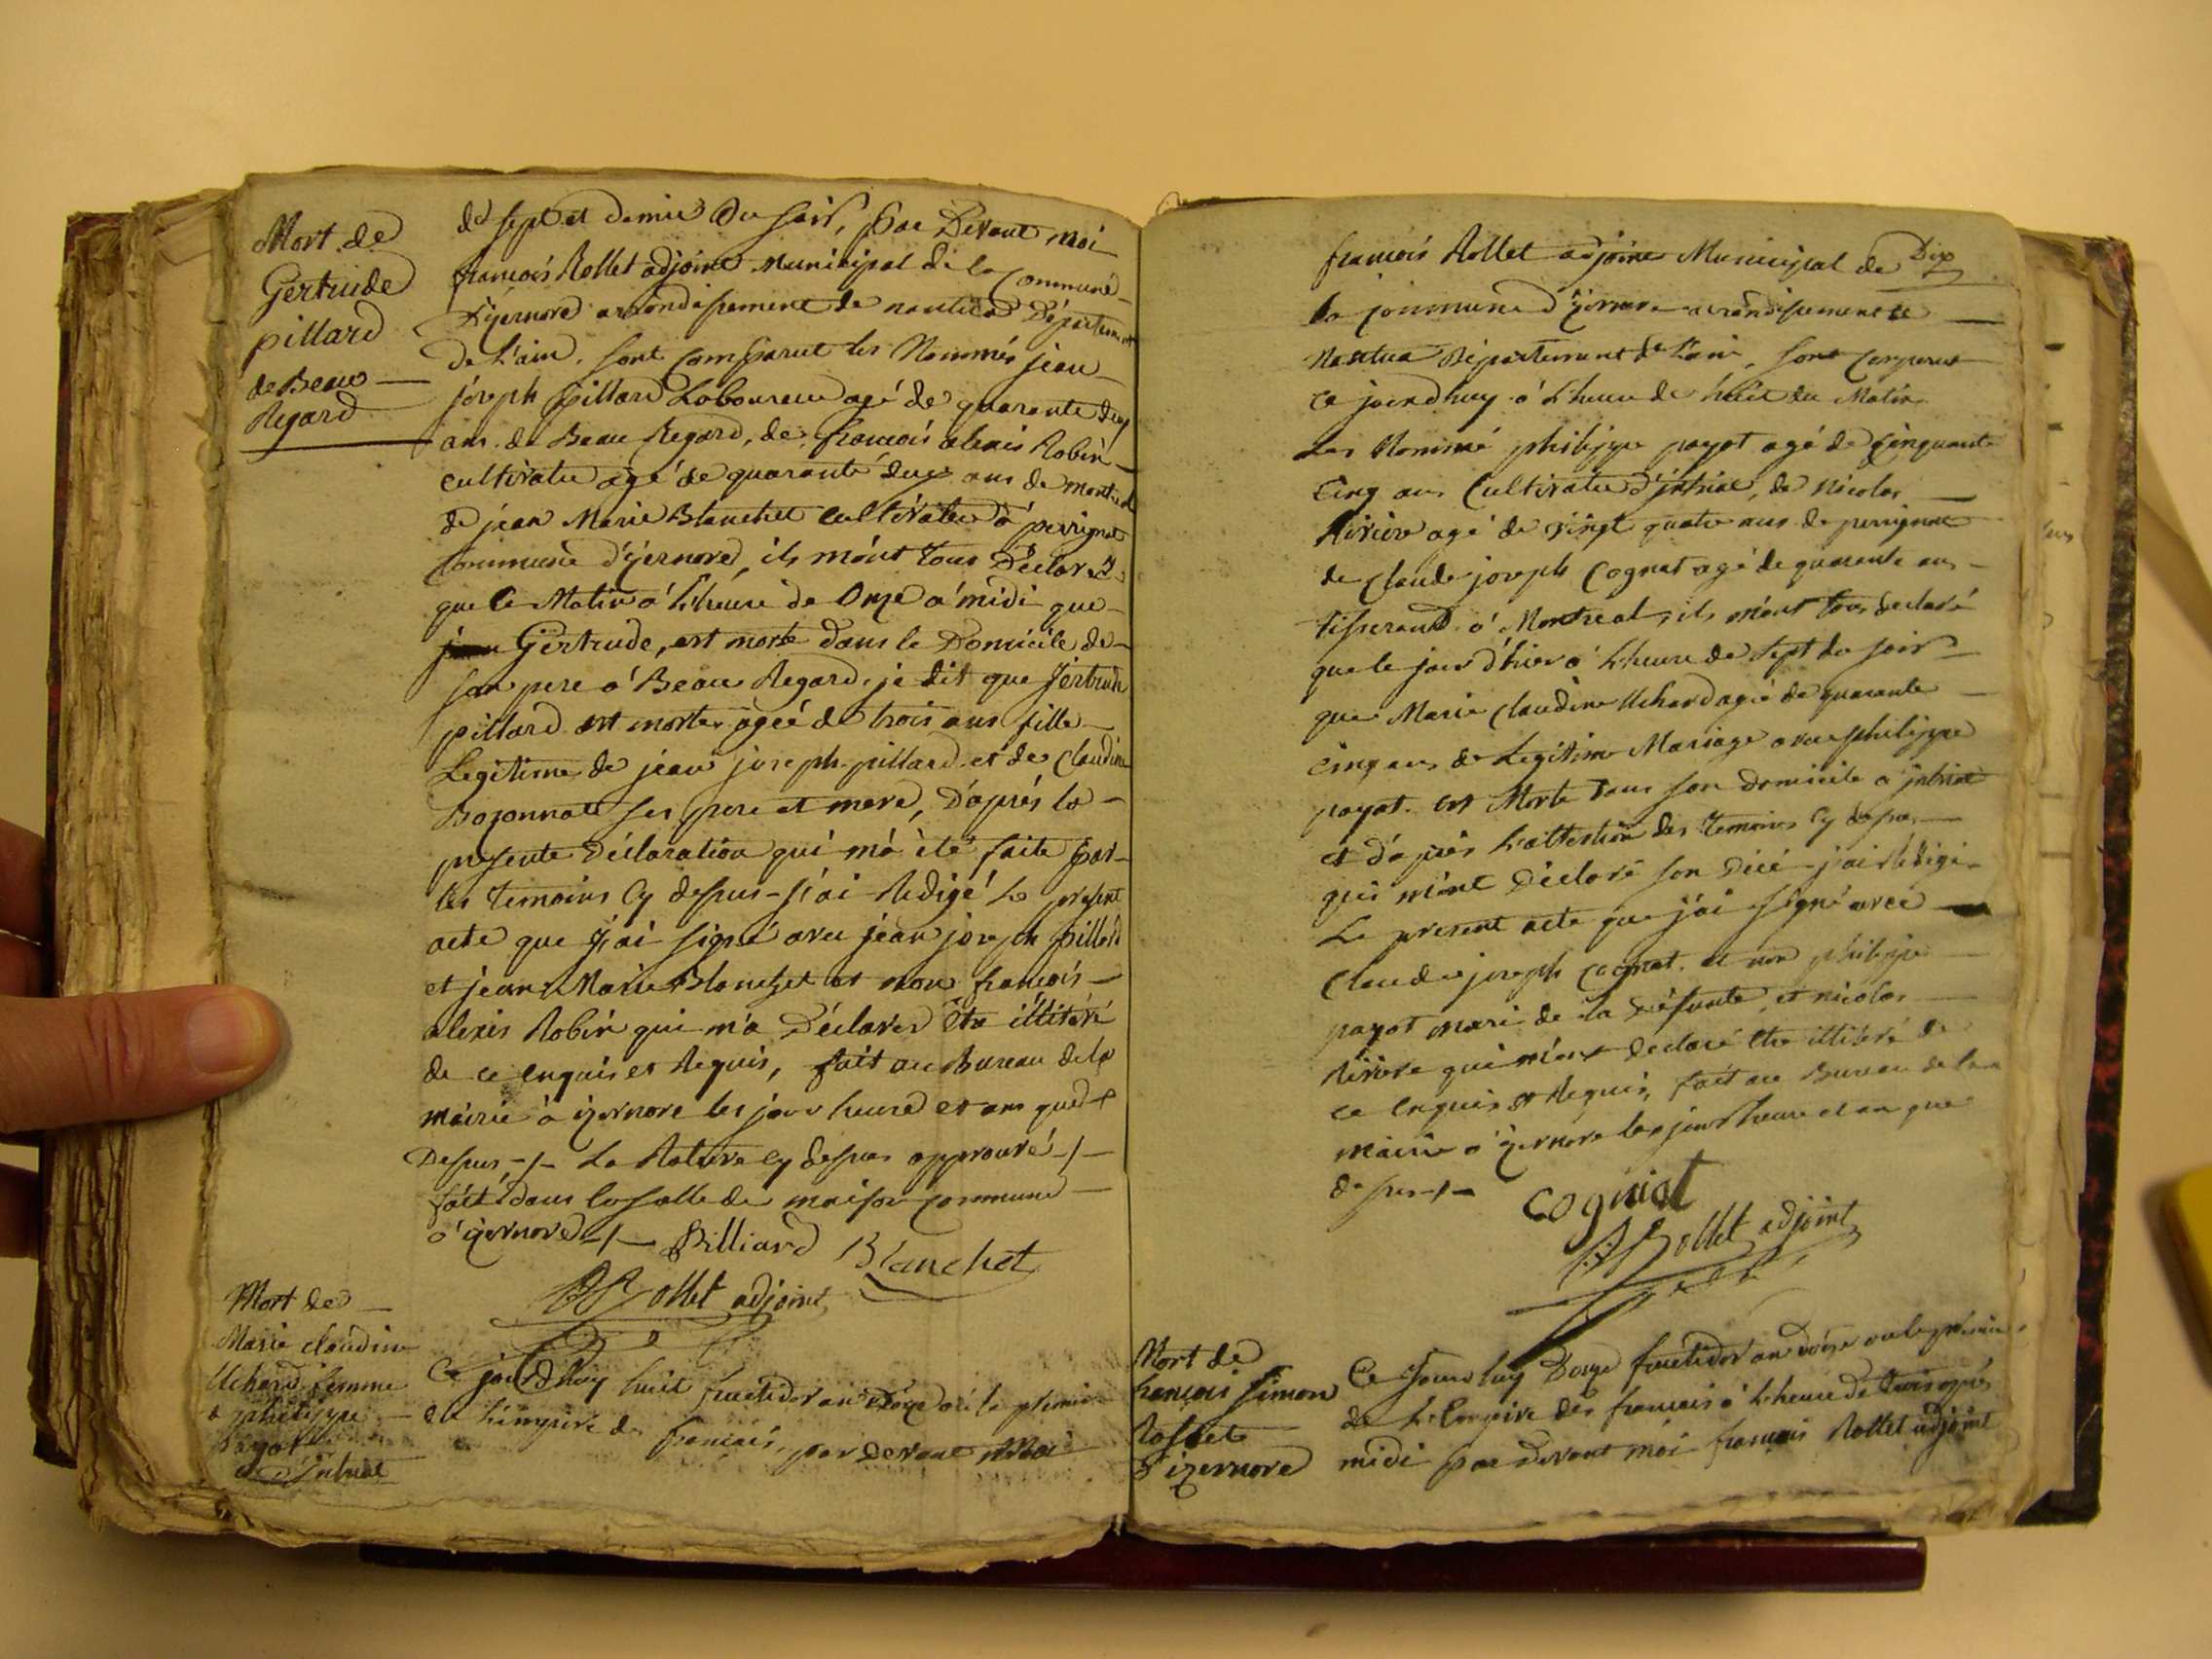 Mort de
Gertrude
pillard
de Beau
Regard
de sept et demie du soir, par Devant moi
francois Rollet adjoint Municipal de la Commune
D'izernore arrondissement de nantua Département
de L'ain, sont Comparut les Nommés jean
joseph pillard Laboureur agé de quarante deux
ans de Beau Regard, de francois alexis Robin
cultivateur agé de quarante deux ans de
de jean Marie Blanchet cultivateur à perignat
Commune d'izernore, ils m'ont tous Déclarez
que Ce Matin à L'heure de Onze à midi que
Gertrude, est morte dans le Domicile de
son pere à Beau Regard, je dit que Jertrude
pillard est morte agée de trois ans fille
Legitime de jean joseph pillard et de Claudine
Bozonnate ses pere et mere, D'après la
presente Déclaration qui m'a été faite par
les temoins Cy dessus j'ai Redigé Le present
acte que j'ai signé avec jean joseph pillard
et jean Marie Blanchet et non francois
alexis Robin qui m'a Déclarer être illiteré
de ce enquis et Requis, fait au Bureau de la
mairie à izernore les jour heure et ans que
Dessus -/- La Rature cy dessus approuvé -/-
fait dans la salle de maison commune
à izernore -/- Billiard Blanchet
Rollet adjoint
Mort de
Marie claudine
Uchard femme
a philippe
payot
d'intriat
Ce jourdhuy huit fructidor an Doze ou le premier
de L'empire des francais, par devant Moi
Dix
francois Rollet adjoint Municipal de
la Commune d'izernore arrondissement de
Nantua Département de L'ain, sont Comparut
ce jourdhuy à L'heure de huit du Matin
Les Nommé philippe payot agé de Cinquante
Cinq ans Cultivateur d'intriat, de Nicolas
Riviere agé de vingt quatre ans de perignat
de Claude joseph Cognat agé de quarante ans
tisserand à Montreal, ils m'ont tous declaré
que le jour d'hier à L'heure de sept du soir
que Marie Claudine Uchard agé de quarante
cinq ans de Legitime Mariage avec philippe
payot est Morte dans son domicile a intriat
et d'après L'attestion des temoins Cy dessus
qui m'ont Déclaré son Décé j'ai Rédigé
Le present acte que j'ai signé avec
Claude joseph Cognat et non philippe
payot mari de la défunte, et nicolas
Riviere qui m'ont declaré être illiteré de
ce enquis et Requis, fait au Bureau de la
mairie à izernore les jour heure et an que
dessus -/- cogniat
Rollet adjoint
Mort de
francois simon
Rosset
d'izernore
Ce Jourd huy Douze fructidor an doize ou le premier
de L'Empire des francais à L'heure de trois après
midi par devant moi francois Rollet adjoint